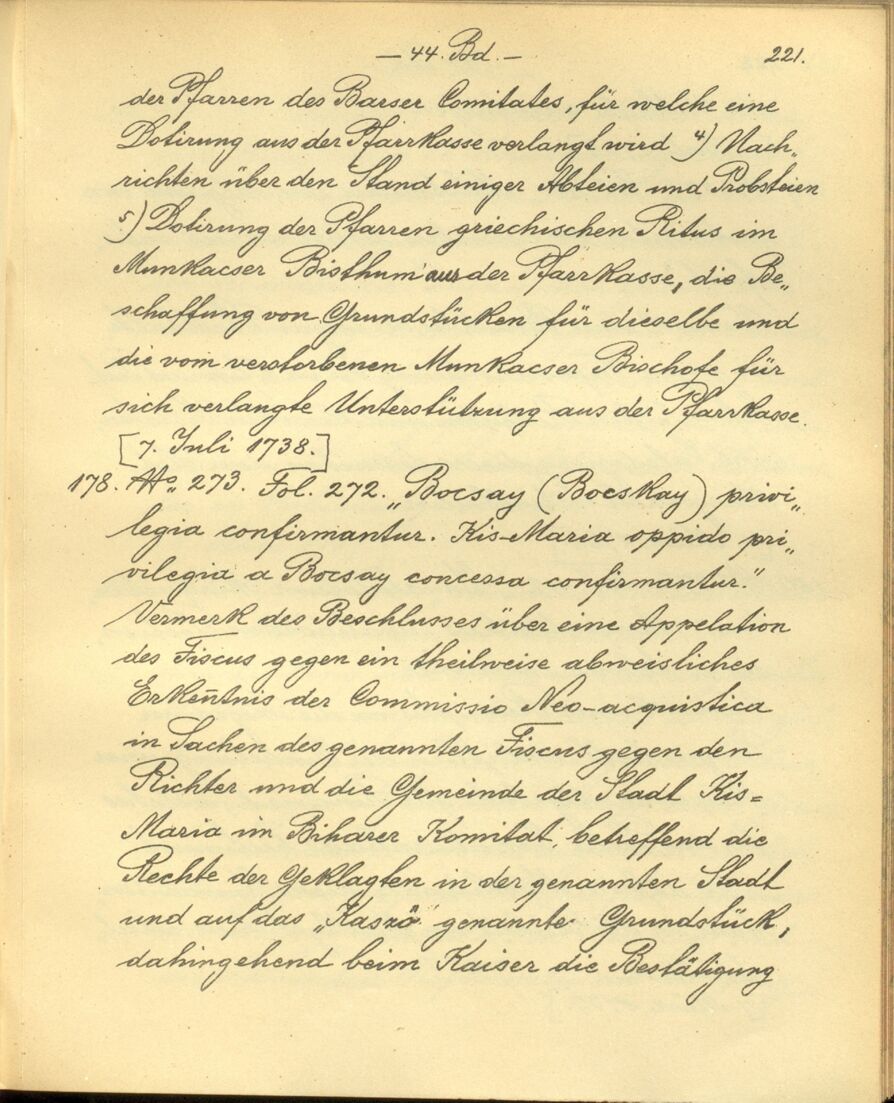 — 44. Bd. — 221.
der Pfarren des Barser Comitates, für welche eine
Dotirung aus der Pfarrkasse verlangt wird 4) Nach„
richten über den Stand einiger Abteien und Probsteien
5) Dotirung der Pfarren griechischen Ritus im
Munkacser Bisthum aus der Pfarrkasse, die Be„
schaffung von Grundstücken für dieselbe und
die vom verstorbenen Munkacser Bischofe für
sich verlangte Unterstützung aus der Pfarrkasse.
[7. Juli 1738.]
178. No. 273. Fol. 272. „Bocsay (Bocskay) privi„
legia confirmantur. Kis-Maria oppido pri„
vilegia a Bocsay concessa confirmantur."
Vermerk des Beschlusses über eine Appelation
des Fiscus gegen ein theilweise abweisliches
Erkeñtnis der Commissio Neo-acquistica
in Sachen des genannten Fiscus gegen den
Richter und die Gemeinde der Stadt Kis=
Maria im Biharer Komitat, betreffend die
Rechte der Geklagten in der genannten Stadt
und auf das „Kaszó" genannte Grundstück,
dahingehend beim Kaiser die Bestätigung